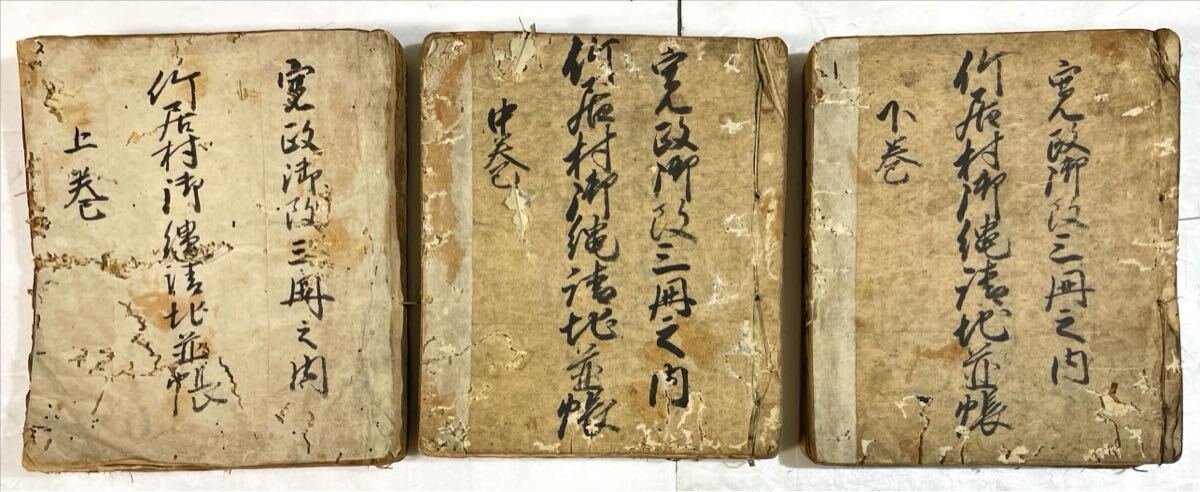 寛政御改三冊之内
竹居村御縄請地並帳
上巻
寛政御改三冊之内
竹居村御縄請地並帳
中巻
寛政御改三冊之内
竹居村御縄請地並帳
下巻